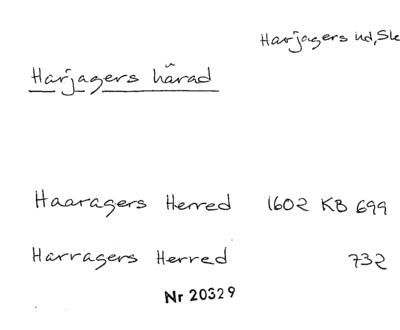 Harjagers hd, Sk
Harjagers härad
Haaragers Herred 1602 KB 699
Harragers Herred 732
Nr 20329